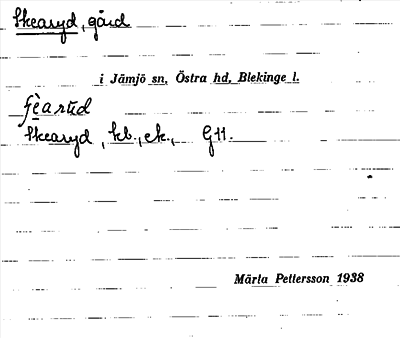 Skearyd, gård
i Jämjö sn, Östra hd, Blekinge l.
Skearyd, kb., ek., G 11.
Märta Pettersson 1938